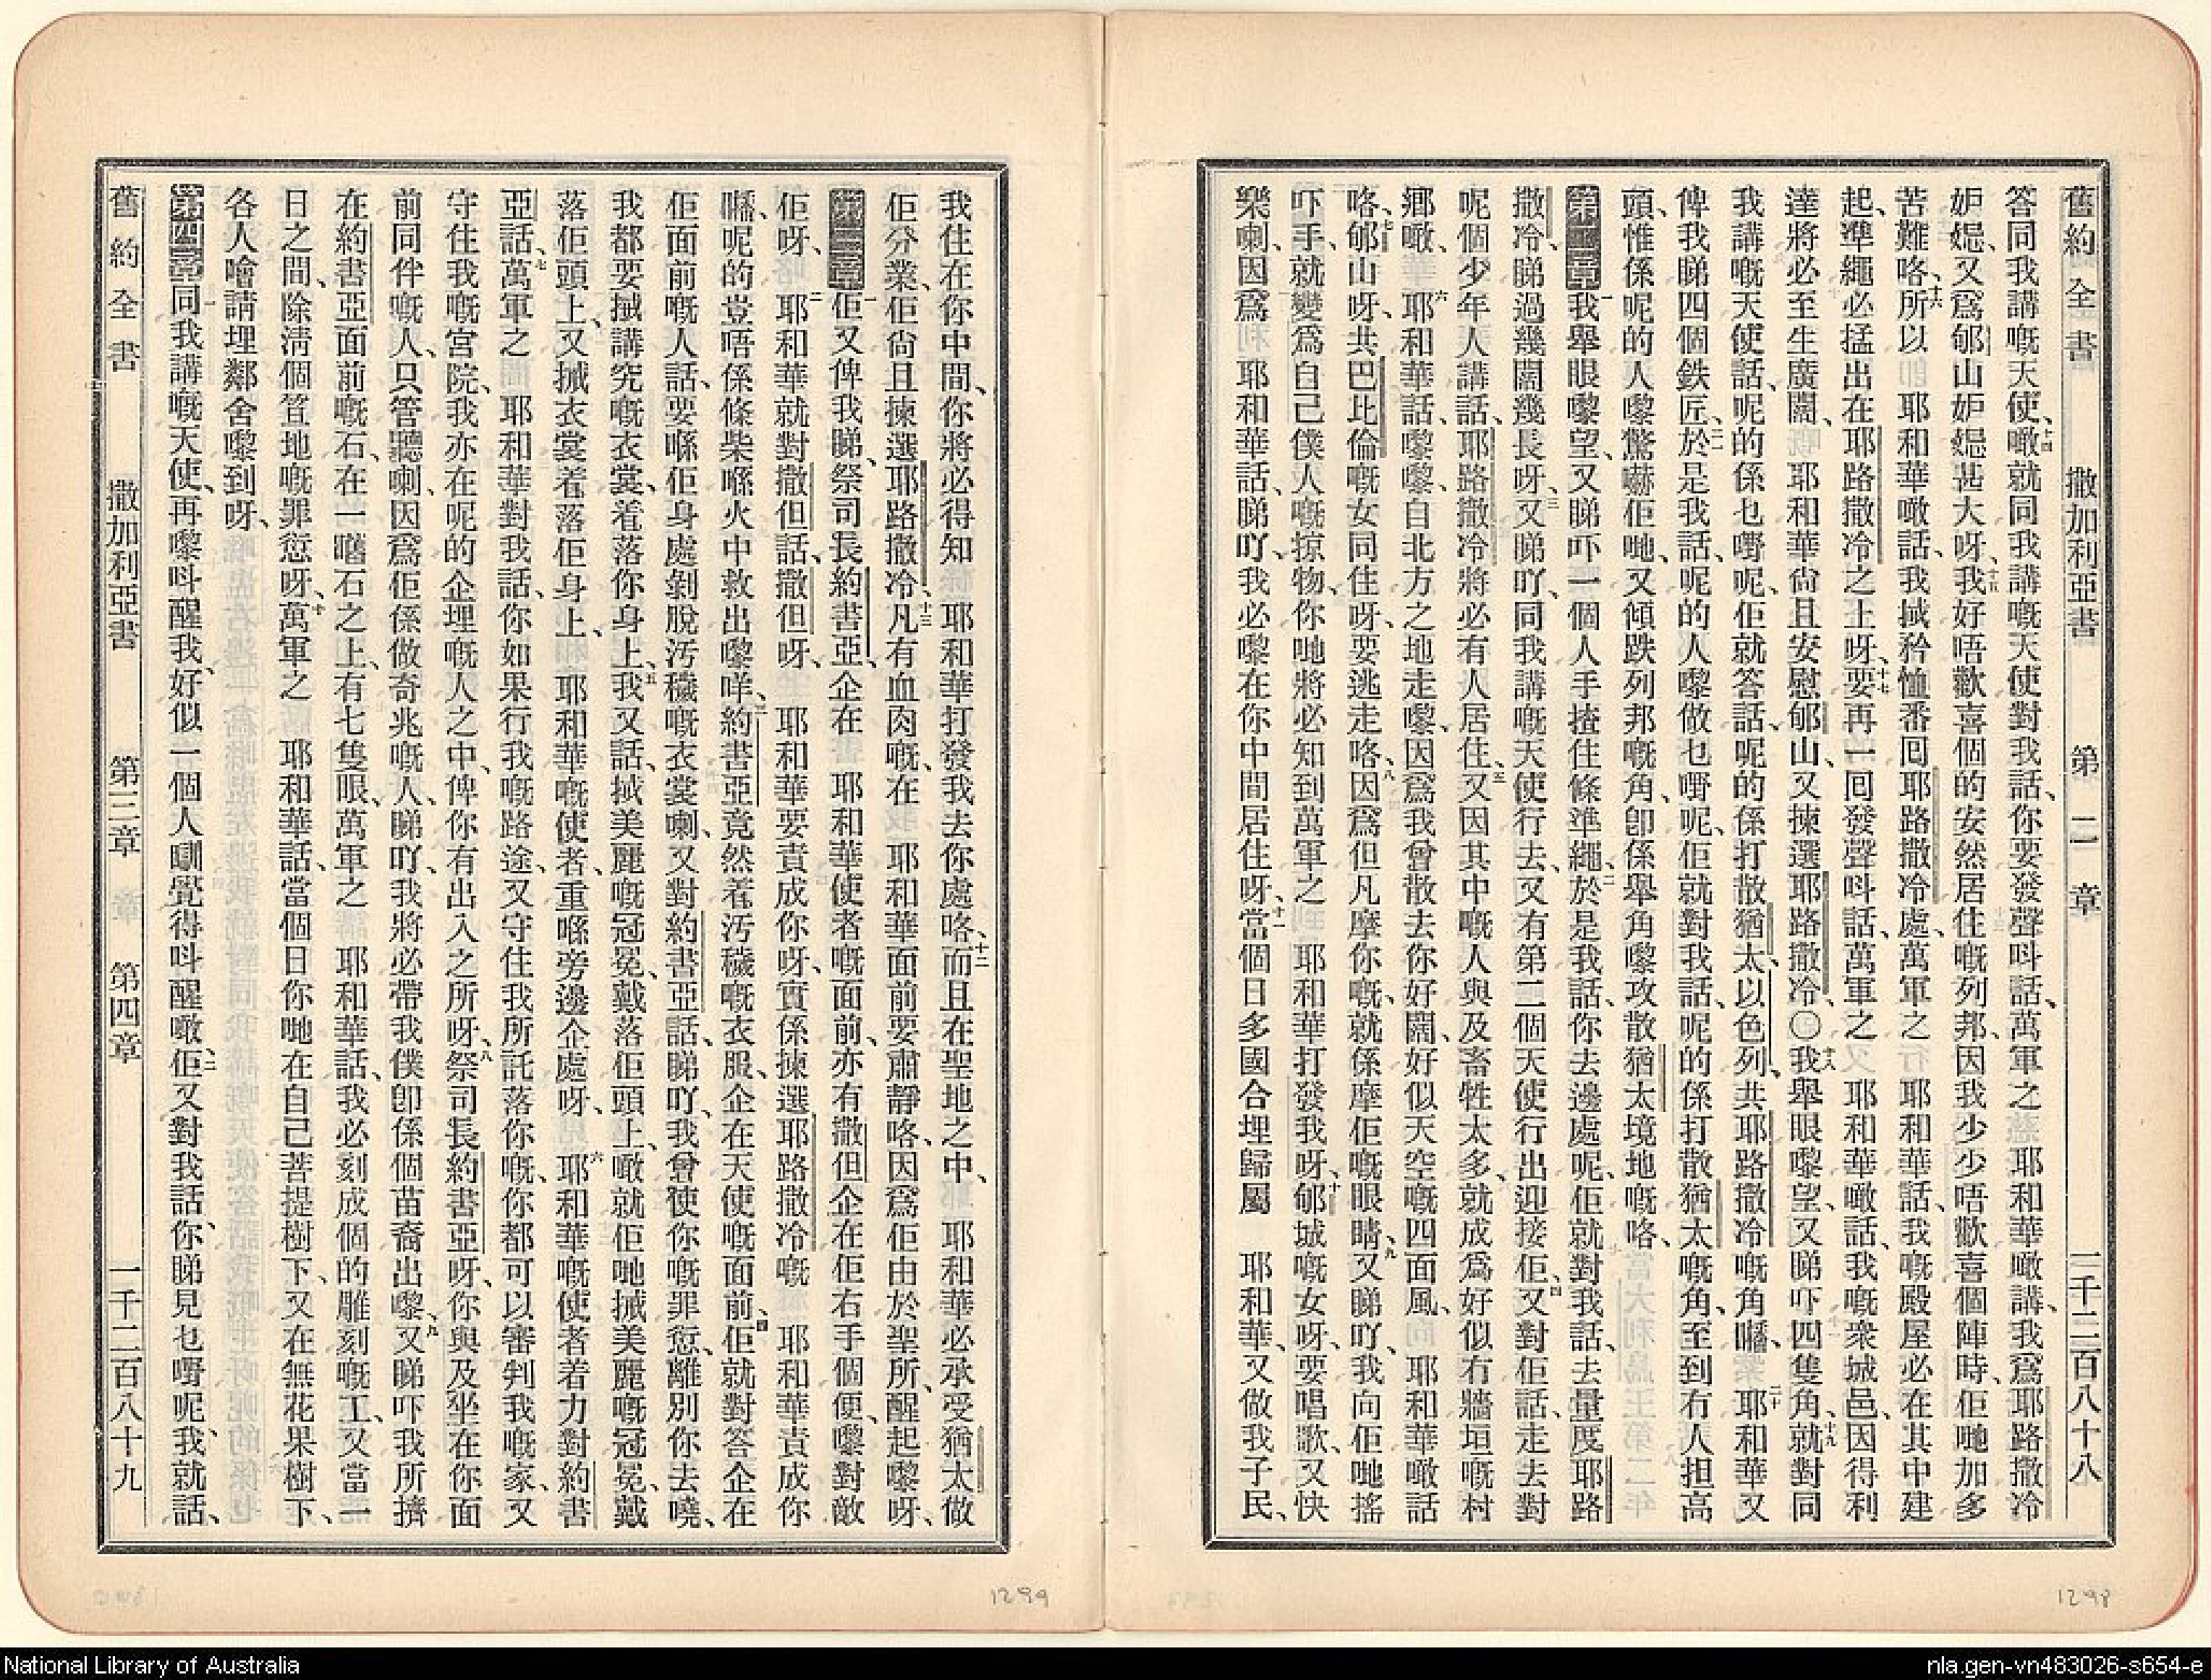 舊約全書 撒加利亞書 第二章 一千二百八十八
答同我講嘅天使、十四噉就同我講嘅天使對我話、你要發聲呌話、萬軍之耶和華噉講、我爲耶路撒冷
妒𡟓、又爲郇山妒𡟓甚大呀、十五我好唔歡喜個的安然居住嘅列邦、因我少少唔歡喜個陣時、佢哋加多
苦難咯、十六所以 耶和華噉話、我㧜矜恤番囘耶路撒冷處、萬軍之 耶和華話、我嘅殿屋必在其中建
起、準繩必掹出在耶路撒冷之上呀、十七要再一囘發聲呌話、萬軍之 耶和華噉話、我嘅衆城邑、因得利
達將必至生廣闊、 耶和華尙且安慰郇山、又揀選耶路撒冷、〇十八我舉眼嚟望、又睇吓四隻角、十九就對同
我講嘅天使話、呢的係乜嘢呢、佢就答話、呢的係打散猶太、以色列、共耶路撒冷嘅角囒、二十耶和華又
俾我睇四個鉄匠、二一於是我話、呢的人嚟做乜嘢呢、佢就對我話、呢的係打散猶太嘅角、至到冇人担高
頭、惟係呢的人嚟驚嚇佢哋、又傾跌列邦嘅角、卽係舉角嚟攻散猶太境地嘅咯、
第二章一我舉眼嚟望、又睇吓一個人手揸住條準繩、二於是我話、你去邊處呢、佢就對我話、去量度耶路
撒冷睇過幾闊幾長呀、三又睇吖、同我講嘅天使行去、又有第二個天使行出迎接佢、四又對佢話、走去對
呢個少年人講話、耶路撒冷將必有人居住、五又因其中嘅人與及畜牲太多、就成爲好似冇牆垣嘅村
鄕噉、 六耶和華話、嚟嚟、自北方之地走嚟、因爲我曾散去你好闊、好似天空嘅四面風、 耶和華噉話
咯、七郇山呀、共巴比倫嘅女同住呀、要逃走咯、八因爲但凡摩你嘅、就係摩佢嘅眼睛、九又睇吖、我向佢哋搖
吓手、就變爲自己僕人嘅掠物、你哋將必知到萬軍之 耶和華打發我呀、十郇城嘅女呀、要唱歌、又快
樂喇、因爲 耶和華話、睇吖、我必嚟在你中間居住呀、十一當個日多國合埋歸屬 耶和華、又做我子民、
1298
我住在你中間、你將必得知 耶和華打發我去你處咯、十二而且在聖地之中、 耶和華必承受猶太做
佢分業、佢尙且揀選耶路撒冷、十三凡有血肉嘅在 耶和華面前要肅靜咯、因爲佢由於聖所、醒起嚟呀、
第三章一佢又俾我睇、祭司長約書亞企在 耶和華使者嘅面前、亦有撒但企在佢右手個便、嚟對敵
佢呀、 二耶和華就對撒但話、撒但呀、 耶和華要責成你呀、實係揀選耶路撒冷嘅 耶和華責成你
囒、呢的豈唔係條柴喺火中救出嚟咩、三約書亞竟然着汚穢嘅衣服、企在天使嘅面前、四佢就對答企在
佢面前嘅人話、要喺佢身處剝脫汚穢嘅衣裳喇、又對約書亞話、睇吖、我曾使你嘅罪愆、離別你去嘵、
我都要㧜講究嘅衣裳、着落你身上、五我又話、㧜美麗嘅冠冕、戴落佢頭上、噉就佢哋㧜美麗嘅冠冕、戴
落佢頭上、又㧜衣裳着落佢身上、 耶和華嘅使者、重喺旁邊企處呀、 六耶和華嘅使者着力對約書
亞話、七萬軍之 耶和華對我話、你如果行我嘅路途、又守住我所託落你嘅、你都可以審判我嘅家、又
守住我嘅宮院、我亦在呢的企埋嘅人之中、俾你有出入之所呀、八祭司長約書亞呀、你與及坐在你面
前同伴嘅人、只管聽喇、因爲佢係做奇兆嘅人、睇吖、我將必帶我僕卽係個苗裔出嚟、九又睇吓我所擠
在約書亞面前嘅石、在一嚿石之上、有七隻眼、萬軍之 耶和華話、我必刻成個的雕刻嘅工、又當一
日之間、除淸個笪地嘅罪愆呀、十萬軍之 耶和華話、當個日你哋在自己菩提樹下、又在無花果樹下、
各人噲請埋鄰舍嚟到呀、
第四章一同我講嘅天使、再嚟呌醒我、好似一個人瞓覺得呌醒噉、二佢又對我話、你睇見乜嘢呢、我就話、
舊約全書 撒加利亞書 第三章 第四章 一千二百八十九
1299
National Library of Australia
nla.gen-vn483026-s654-e